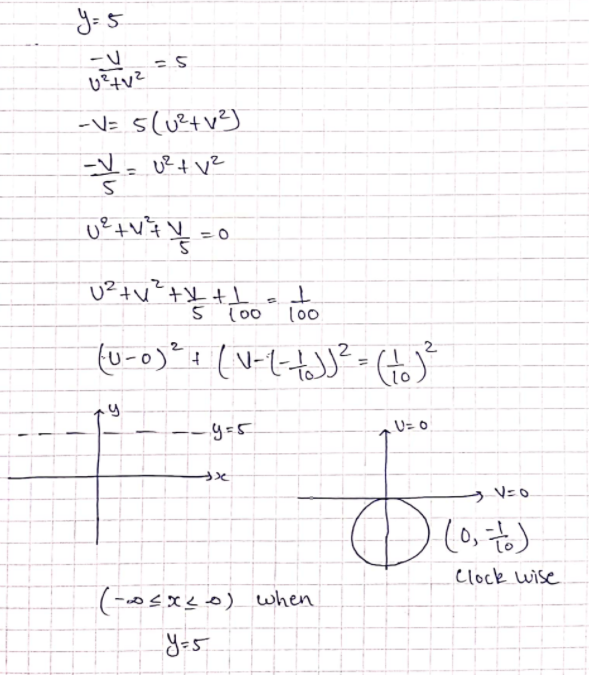 y=5
-V/(U²+V²) = 5
-V= 5(U²+V²)
-V/5 = U²+V²
U²+V²+V/5 =0
U²+V²+V/5+1/100 = 1/100
(U-0)² + (V-(-1/10))² = (1/10)²
y
y=5
x
U=0
V=0
(0, -1/10)
Clock wise
(-∞≤x≤∞) when
y=5